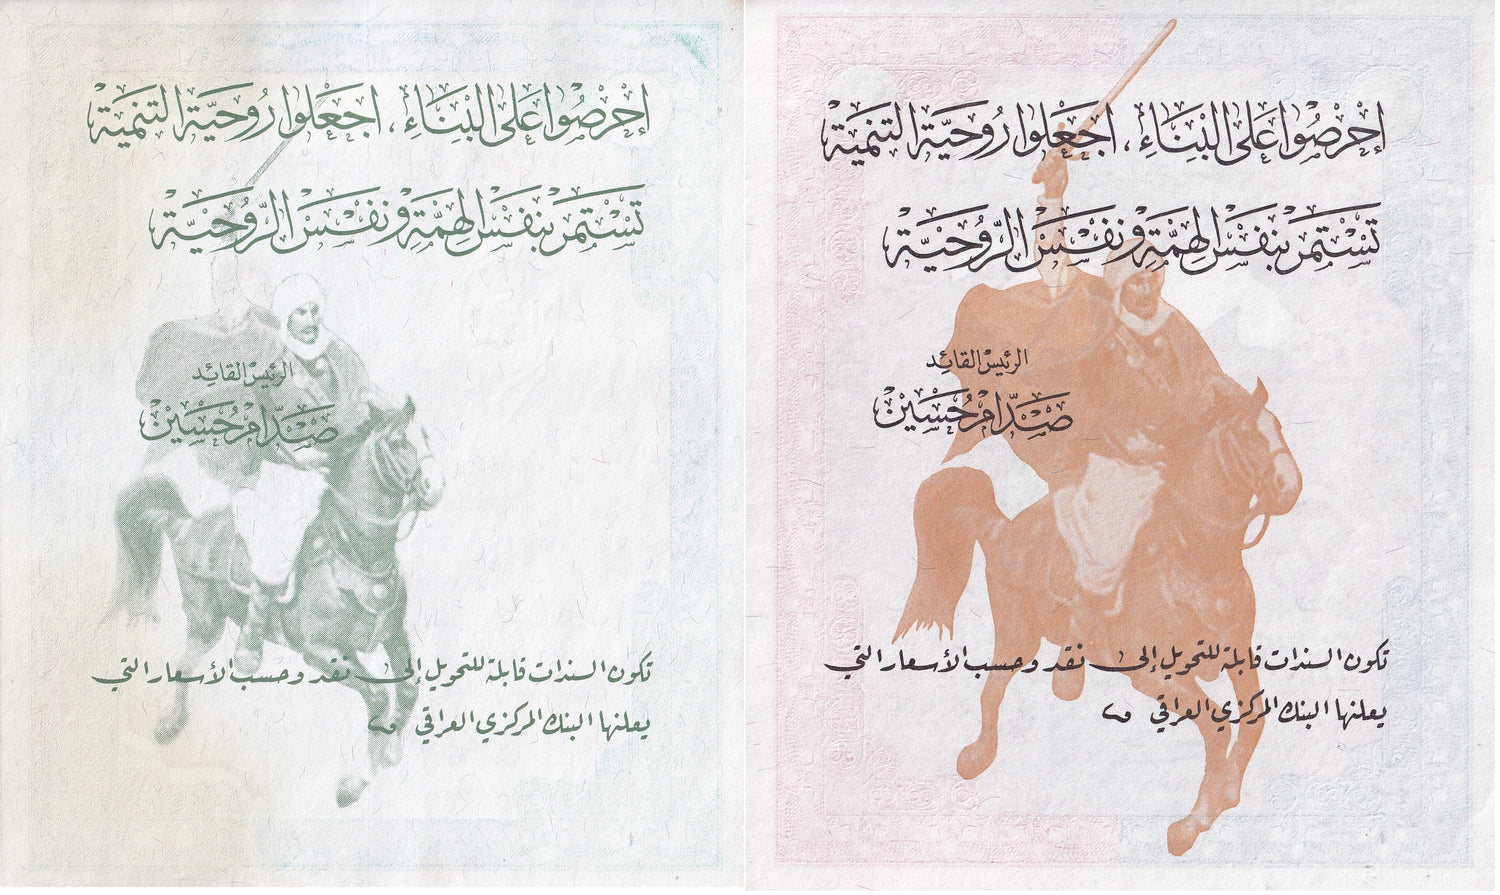 إحْرصُوا عَلى البْنَاء ، اجعَلوا رُوحيَّة التنمية
تسْتمرّ بنفسْ الهِمَّةِ و نفسَ الرّوُحيَّة
الرئيسْ القائِد
صَدّام حُسَين
تكون السندات قابلة للتحويل إلى نقد وحسب الأسعار التي
يعلنها البنك المركزي العراقي
إحْرصُوا عَلى البْنَاءِ ، اجعَلوا رُوحيَّة التنمية
تسْتمرّ بنفسْ الهِمَّةِ و نفسَ الرّوُحيَّة
الرئيسْ القائِد
صَدّام حُسَين
تكون السندات قابلة للتحويل إلى نقد وحسب الأسعار التي
يعلنها البنك المركزي العراقي